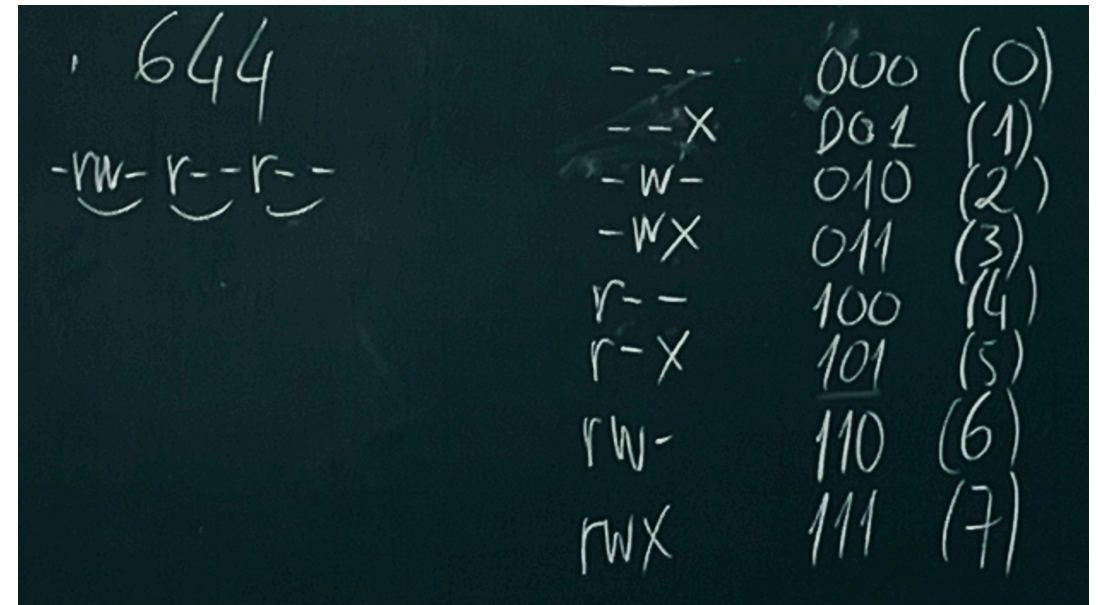 644
-rw-r--r--
--- 000 (0)
--x 001 (1)
-w- 010 (2)
-wx 011 (3)
r-- 100 (4)
r-x 101 (5)
rw- 110 (6)
rwx 111 (7)